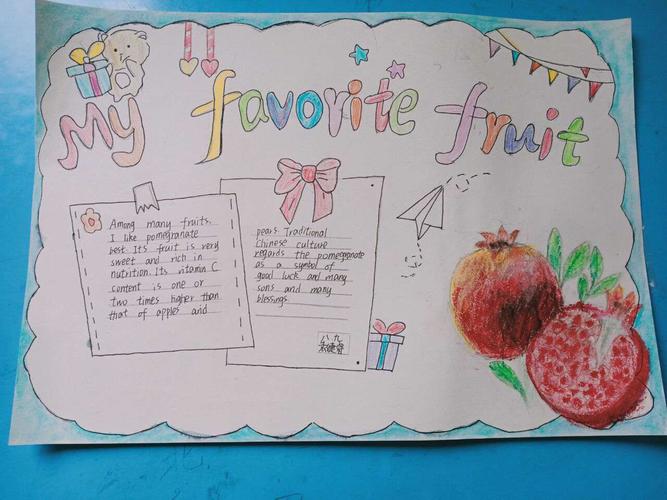 My favorite fruit
Among many fruits.
I like pomegranate
best. Its fruit is very
sweet and rich in
nutrition. Its vitamin C
content is one or
two times higher than
that of apples and
pears. Traditional
Chinese culture
regards the pomegranate
as a symbol of
good luck and many
sons and many
blessings.
八九